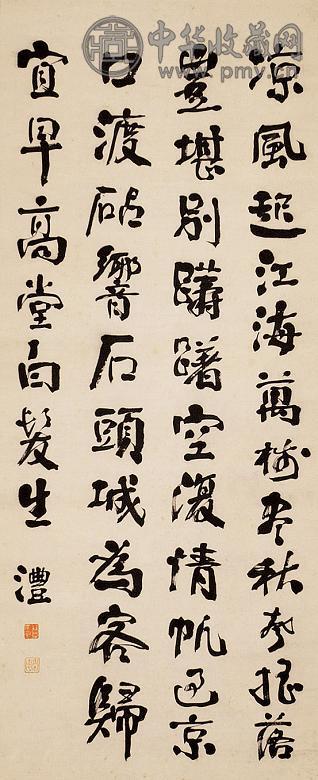 中华收藏网
www.pmy.cn
涼風起江海萬樹盡秋聲搖落
豈堪別躊躇空復情帆過京
口渡砧響石頭城為客歸
宜早高堂白髮生
澧